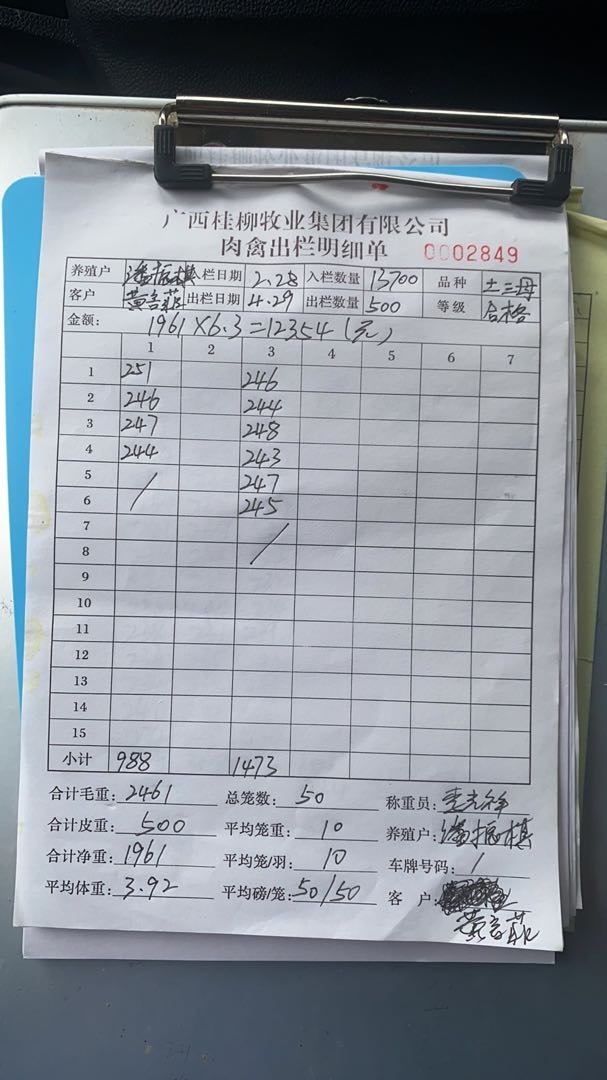 广西桂柳牧业集团有限公司
肉禽出栏明细单 0002849
养殖户 潘振棋 入栏日期 2.28 入栏数量 13700 品种 土三母
客户 黄言菲 出栏日期 4.29 出栏数量 500 等级 合格
金额: 1961×6.3=12354(元)
1 2 3 4 5 6 7
1 251 246
2 246 244
3 247 248
4 244 243
5 / 247
6 245
7 /
8
9
10
11
12
13
14
15
小计 988 1473
合计毛重: 2461 总笼数: 50 称重员:
合计皮重: 500 平均笼重: 10 养殖户: 潘振棋
合计净重: 1961 平均笼/羽: 10 车牌号码: /
平均体重: 3.92 平均磅/笼: 50/50 客户:
黄言菲